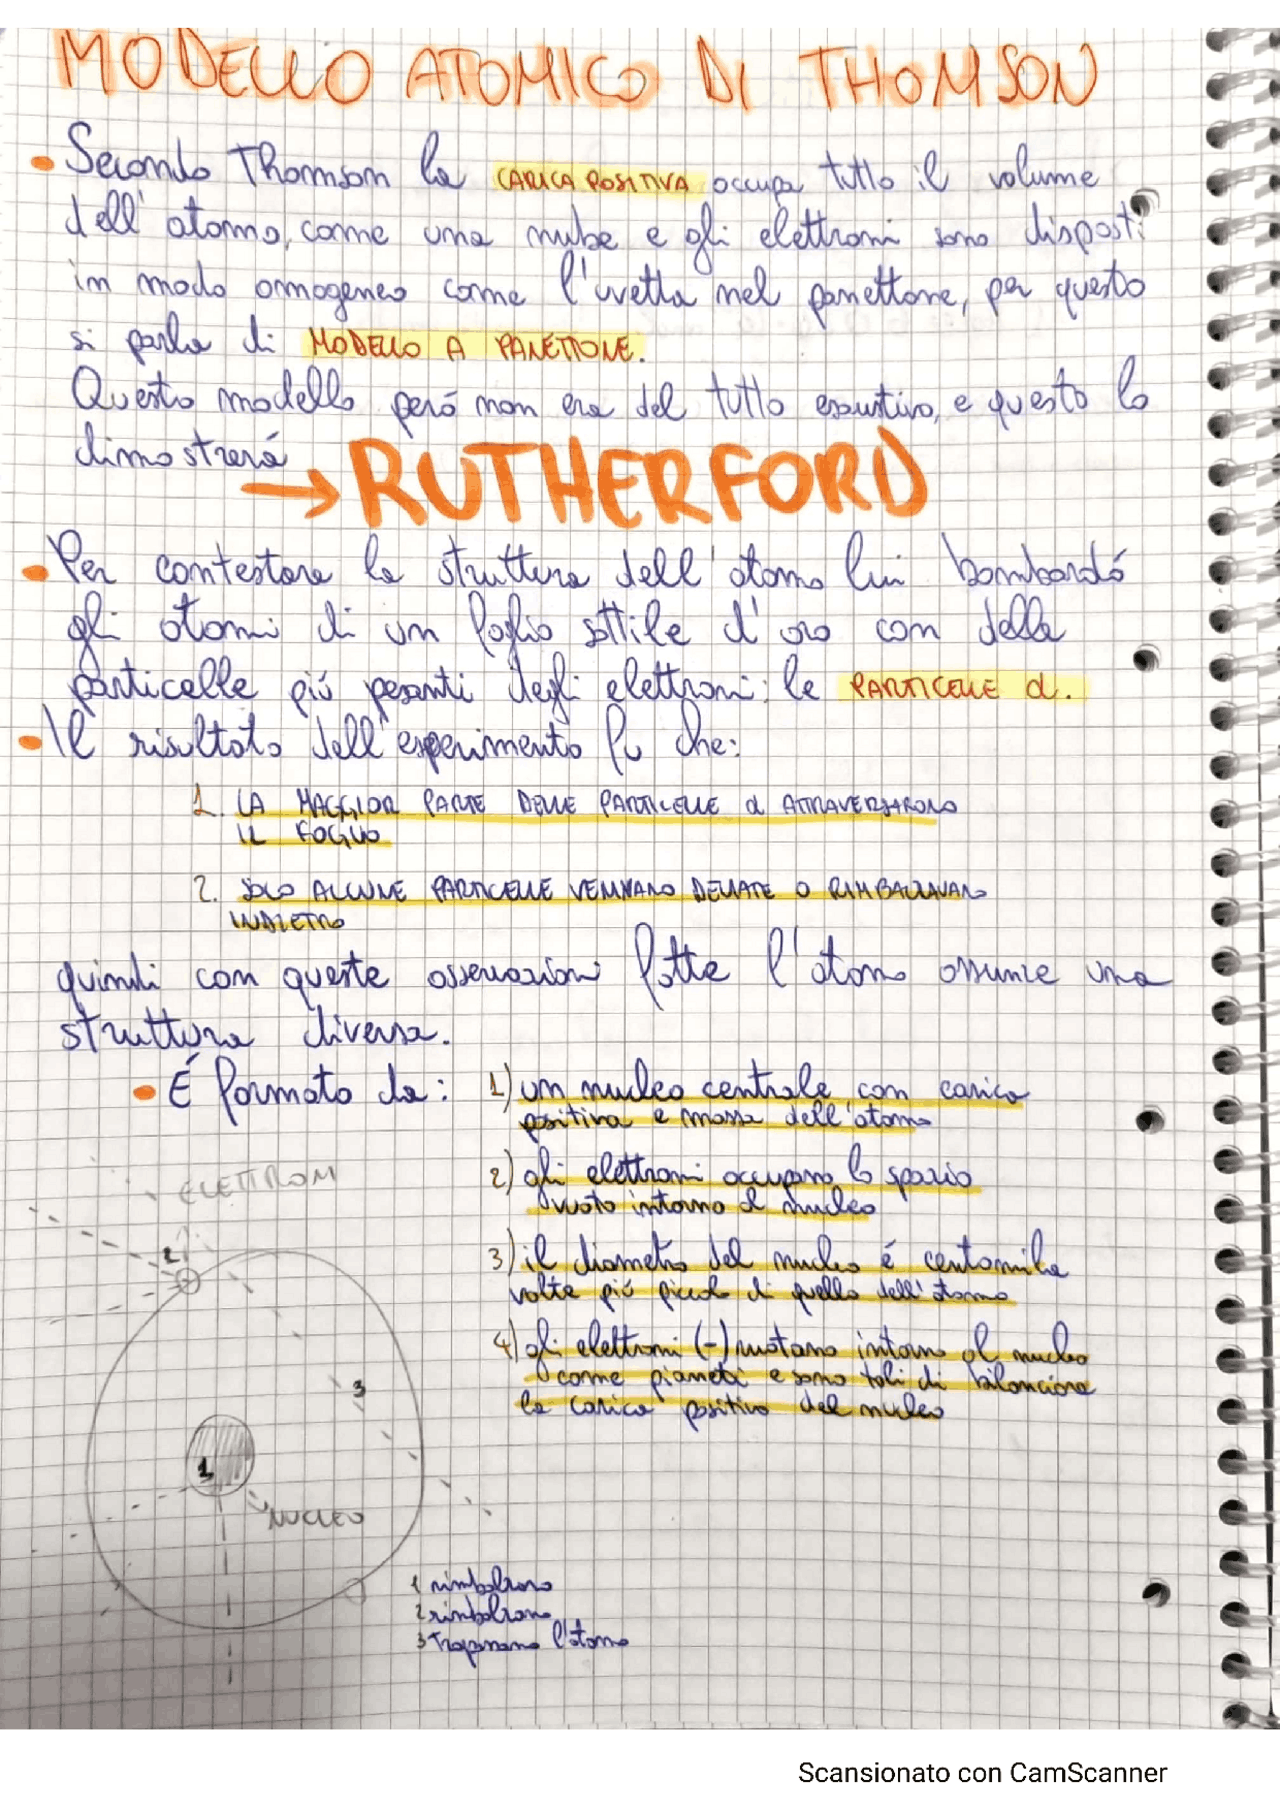 MODELLO ATOMICO DI THOMSON
• Secondo Thomson la CARICA POSITIVA occupa tutto il volume
dell'atomo, come una nube e gli elettroni sono disposti
in modo omogeneo come l'uvetta nel panettone, per questo
si parla di MODELLO A PANETTONE.
Questo modello però non era del tutto esaustivo, e questo lo
dimostrerá
→ RUTHERFORD
• Per contestare la struttura dell'atomo lui bombardó
gli atomi di un foglio sottile d'oro con delle
particelle piú pesanti degli elettroni: le PARTICELLE α.
• Il risultato dell'esperimento fu che:
1. LA MAGGIOR PARTE DELLE PARTICELLE α ATTRAVERSARONO
IL FOGLIO
2. SOLO ALCUNE PARTICELLE VENIVANO DEVIATE O RIMBALZAVANO
INDIETRO
quindi con queste osservazioni fatte l'atomo assume una
struttura diversa.
• É formato da: 1) un nucleo centrale con carica
positiva e massa dell'atomo
2) gli elettroni occupano lo spazio
vuoto intorno al nucleo
3) il diametro del nucleo é centomila
volte piú piccolo di quello dell'atomo
4) gli elettroni (-) ruotano intorno al nucleo
come pianeti e sono tali di bilanciare
la carica positiva del nucleo
ELETTRONI
2
3
1
NUCLEO
1 rimbalzano
2 rimbalzano
3 trapassano l'atomo
Scansionato con CamScanner